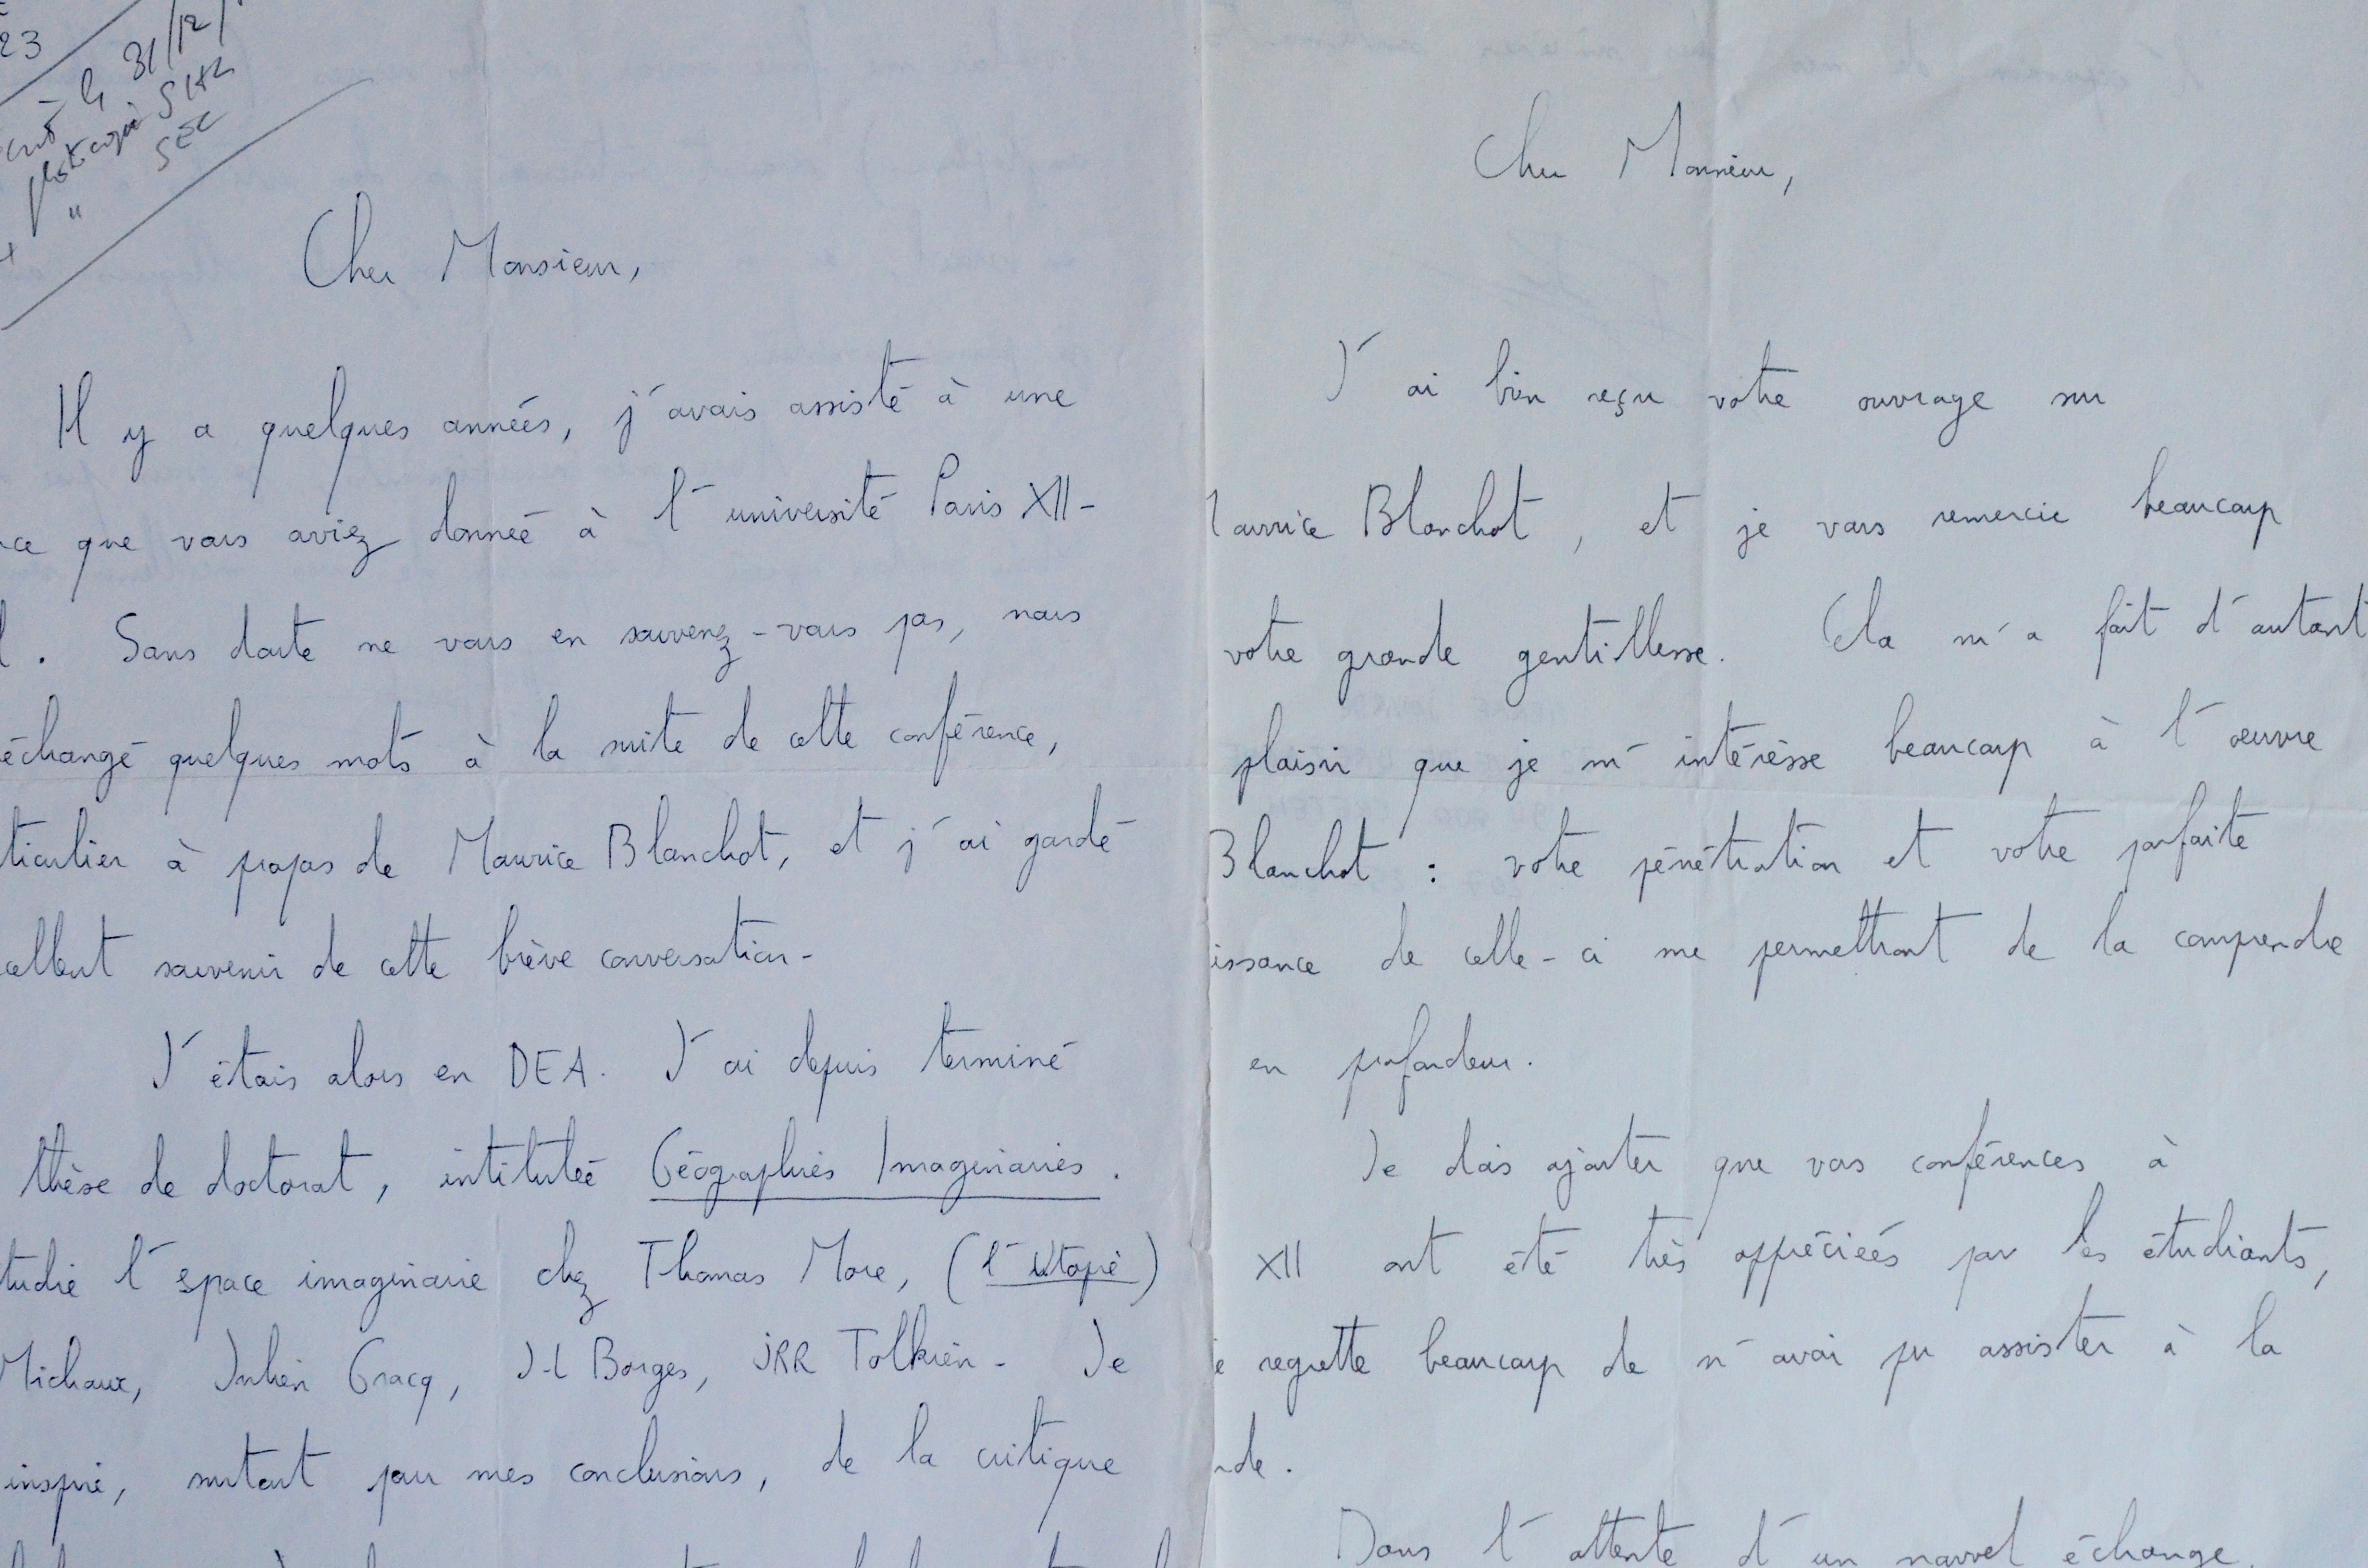 23
le 31/12/
photocopie SHL
" SEC
Cher Monsieur,
Il y a quelques années, j'avais assisté à une
nce que vous aviez donnée à l'université Paris XII-
l. Sans doute ne vous en souvenez-vous pas, nous
échangé quelques mots à la suite de cette conférence,
ticulier à propos de Maurice Blanchot, et j'ai gardé
cellent souvenir de cette brève conversation-
J'étais alors en DEA. J'ai depuis terminé
thèse de doctorat, intitulée Géographies Imaginaires.
tudié l'espace imaginaire chez Thomas More, (l'Utopie)
Michaux, Julien Gracq, J-L Borges, JRR Tolkien- Je
inspiré, surtout pour mes conclusions, de la critique
Cher Monsieur,
J'ai bien reçu votre ouvrage sur
Maurice Blanchot, et je vous remercie beaucoup
votre grande gentillesse. Cela m'a fait d'autant
plaisir que je m'intéresse beaucoup à l'œuvre
Blanchot : votre pénétration et votre parfaite
issance de celle-ci me permettront de la comprendre
en profondeur.
Je dois ajouter que vos conférences à
XII ont été très appréciées par les étudiants,
e regrette beaucoup de n'avoir pu assister à la
nde.
Dans l'attente d'un nouvel échange,